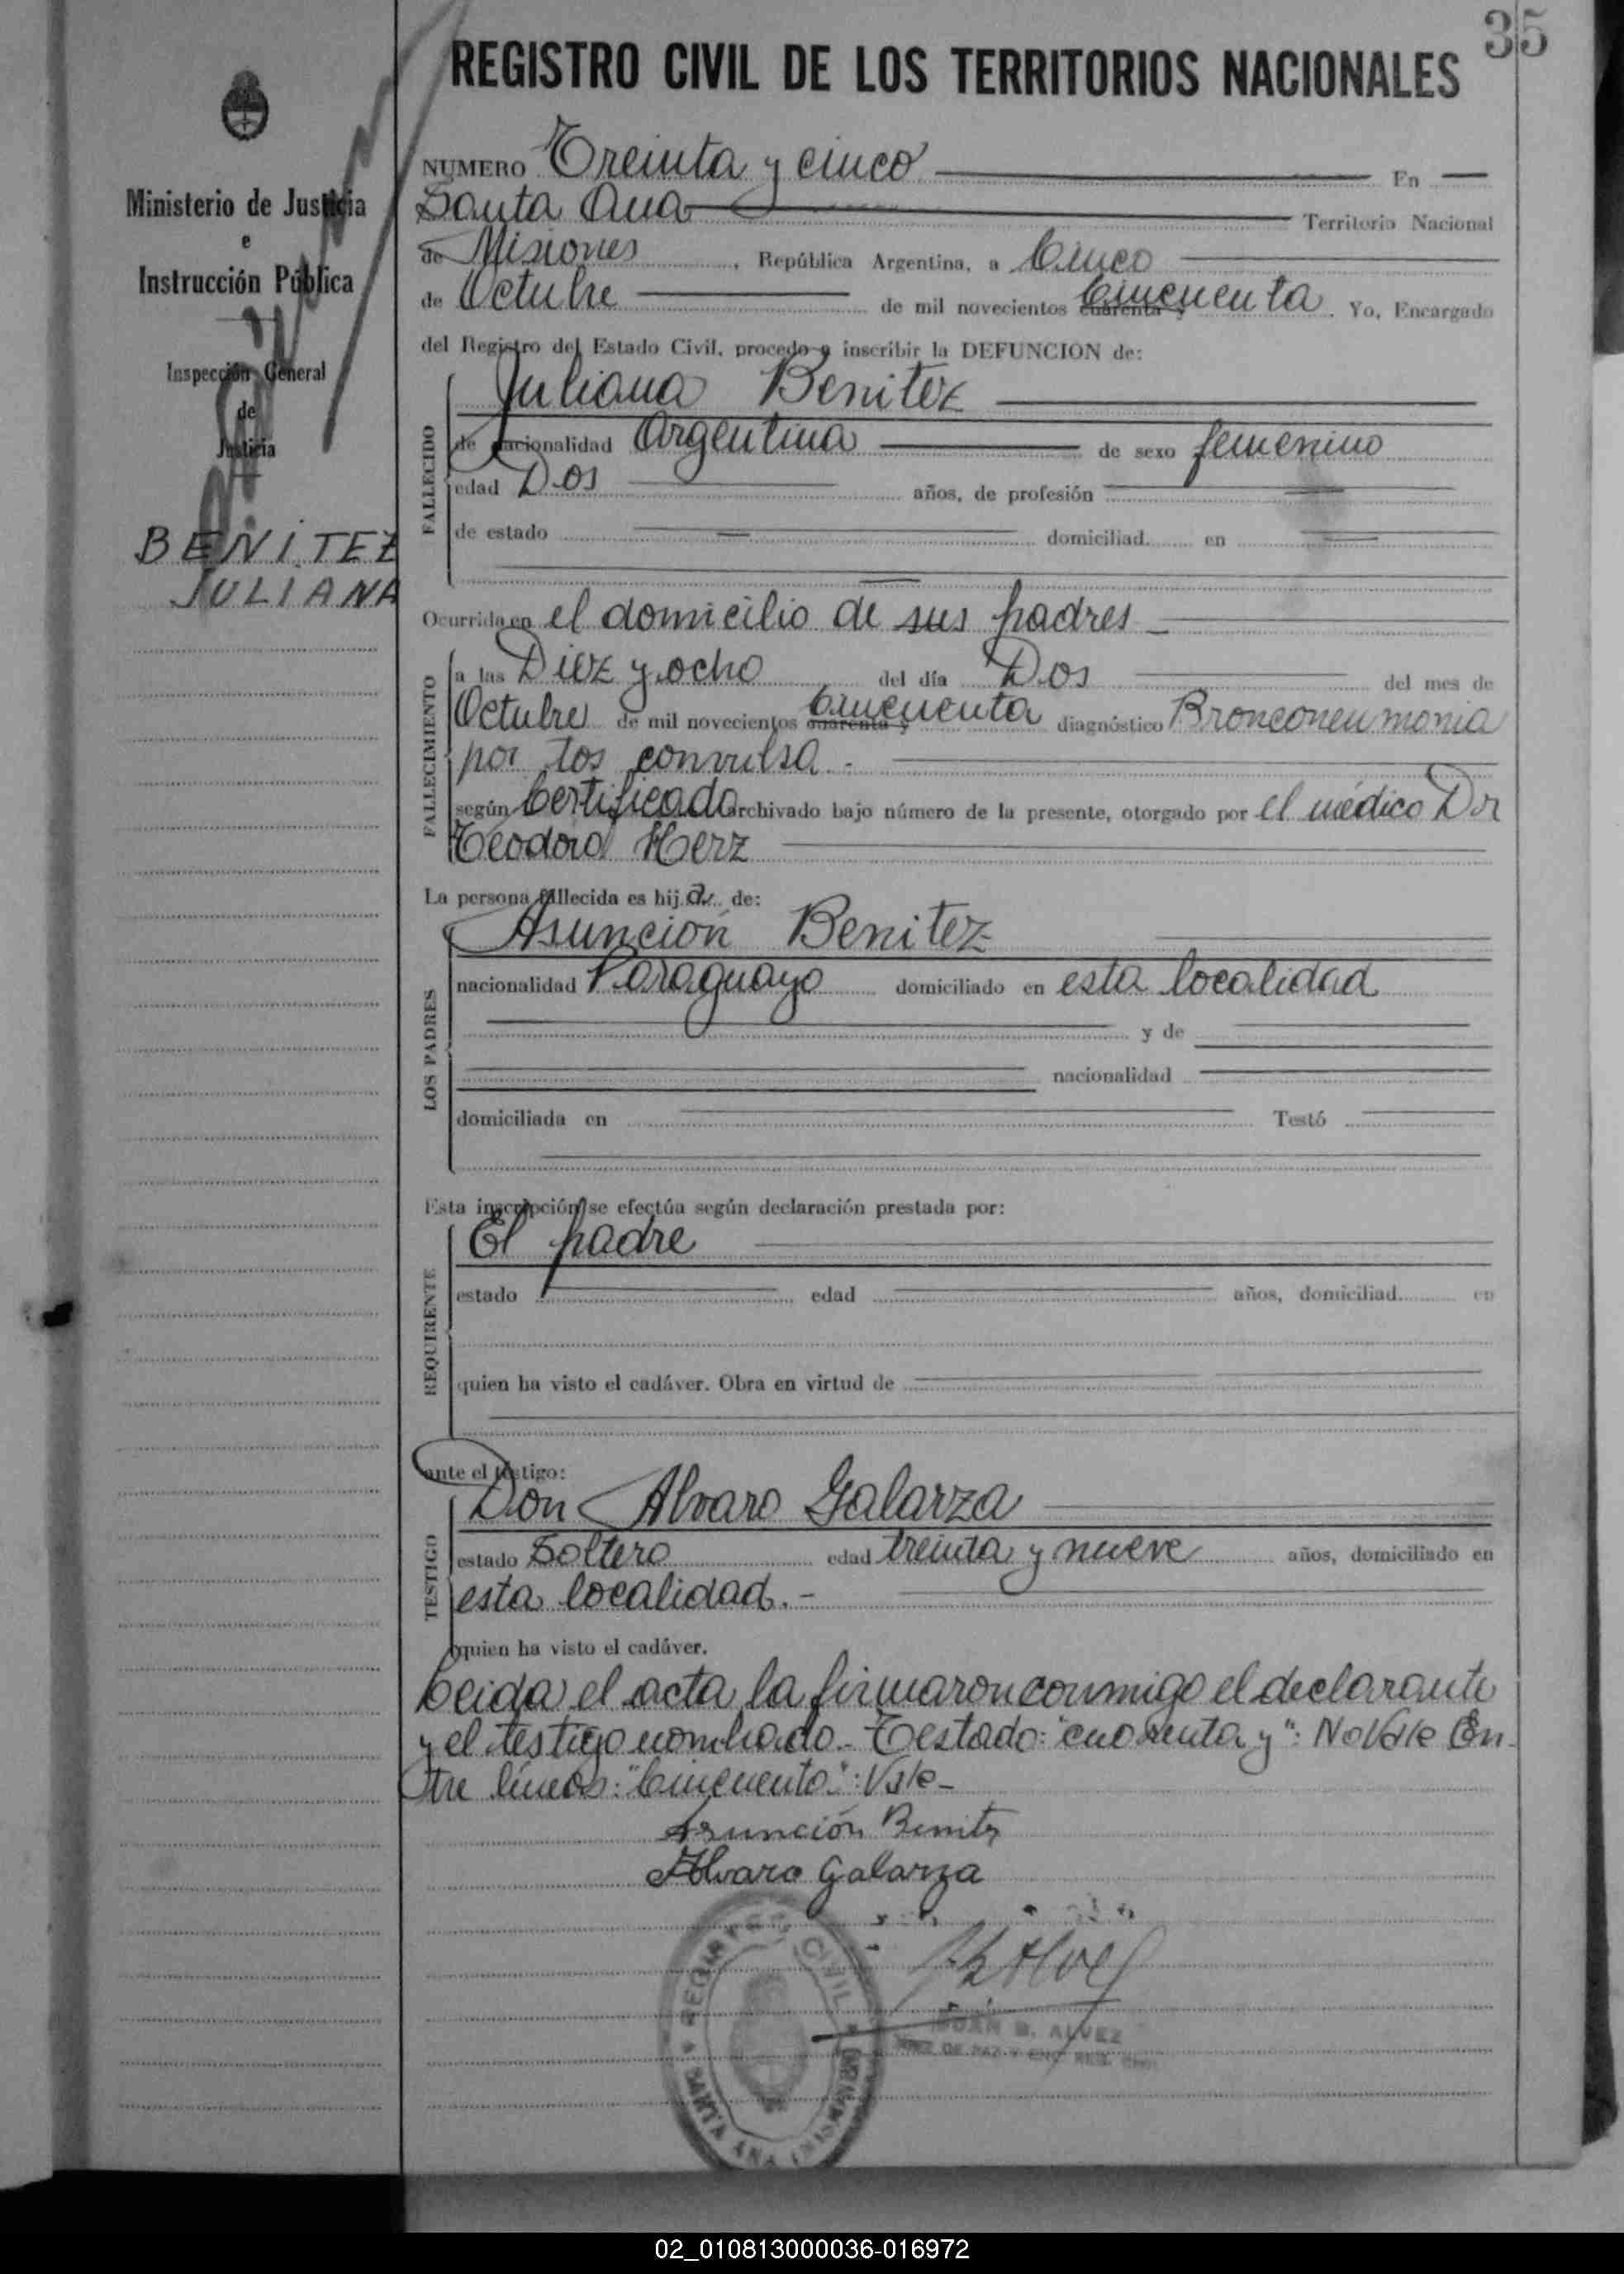 35
REGISTRO CIVIL DE LOS TERRITORIOS NACIONALES
Ministerio de Justicia
e
Instrucción Pública
Inspección General
de
Justicia
BENITEZ
JULIANA
NUMERO Treinta y cinco En
Santa Ana Territorio Nacional
de Misiones, República Argentina, a Cinco
de Octubre de mil novecientos cuarenta y Cincuenta. Yo, Encargado
del Registro del Estado Civil, procedo a inscribir la DEFUNCION de:
FALLECIDO
Juliana Benitez
de nacionalidad Argentina de sexo femenino
edad Dos años, de profesión
de estado domiciliad en
Ocurrida en el domicilio de sus padres
FALLECIMIENTO
a las Diez y ocho del día Dos del mes de
Octubre de mil novecientos cuarenta y Cincuenta diagnóstico Bronconeumonia
por tos convulsa.-
según Certificado archivado bajo número de la presente, otorgado por el médico Dr
Teodoro Herz
La persona fallecida es hija de:
LOS PADRES
Asunción Benitez
nacionalidad Paraguayo domiciliado en esta localidad
y de
nacionalidad
domiciliada en Testó
Esta inscripción se efectúa según declaración prestada por:
REQUIRENTE
El padre
estado edad años, domiciliad en
quien ha visto el cadáver. Obra en virtud de
ante el testigo:
TESTIGO
Don Alvaro Galarza
estado Soltero edad treinta y nueve años, domiciliado en
esta localidad.-
quien ha visto el cadáver.
Leida el acta la firmaron conmigo el declarante
y el testigo nombrado.- Testado: "cuarenta y": No Vale En-
tre líneas: "Cincuenta": Vale-
Asunción Benitz
Alvaro Galarza
REGISTRO CIVIL
SANTA ANA (MISIONES)
JUAN B. ALVEZ
JUEZ DE PAZ Y ENC. REG. CIVIL
02_010813000036-016972